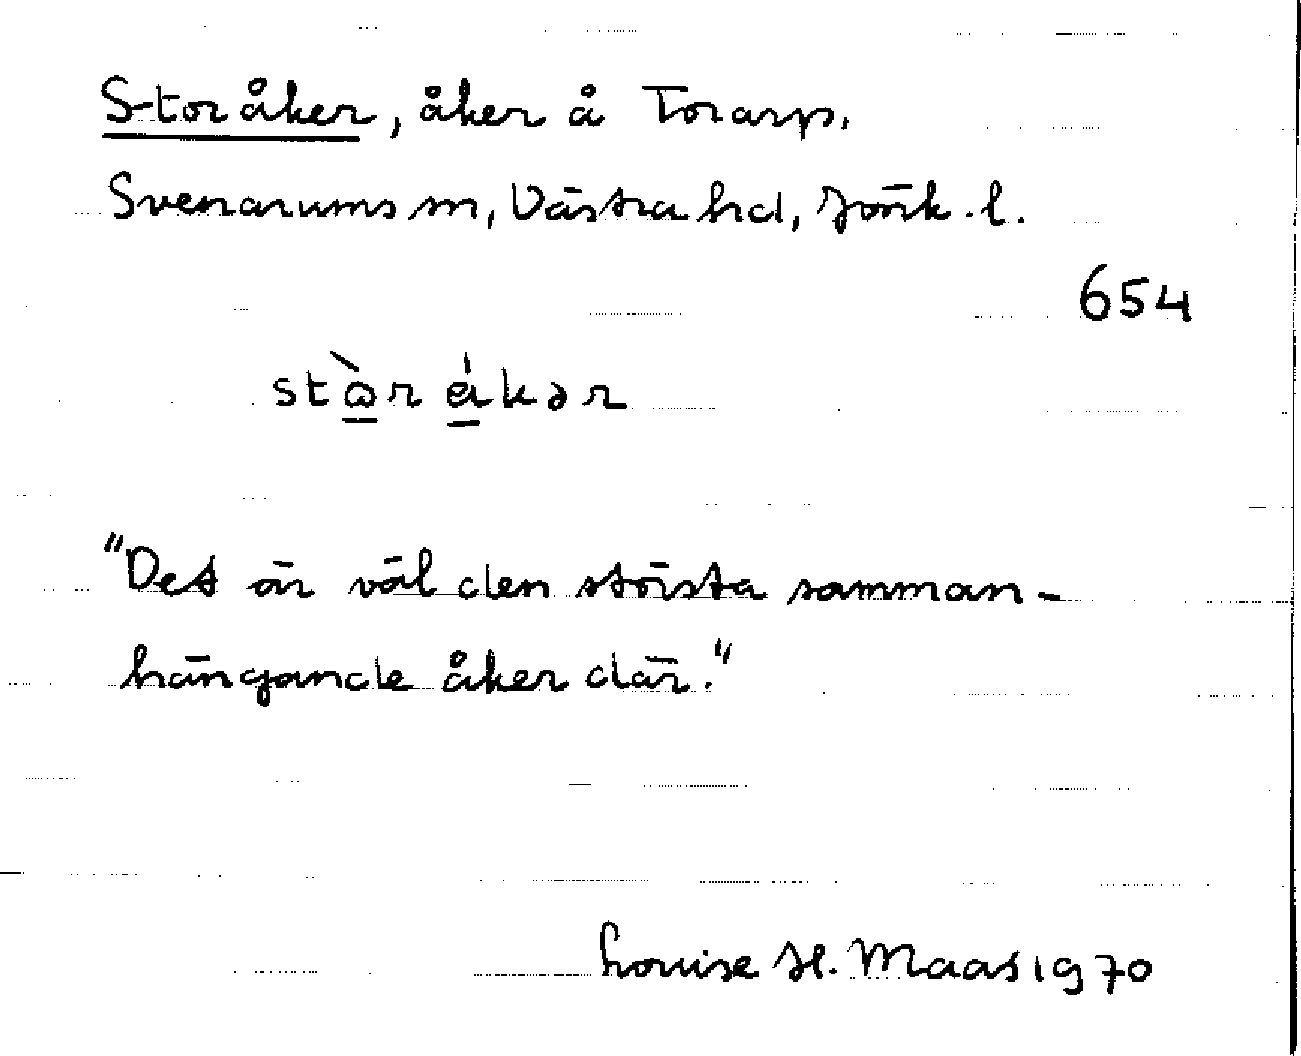 Storåker, åker å Torarp,
Svenarums sn, Västra hd, Jönk. l.
654
"Det är väl den största samman-
hängande åker där."
Louise H. Maas 1970